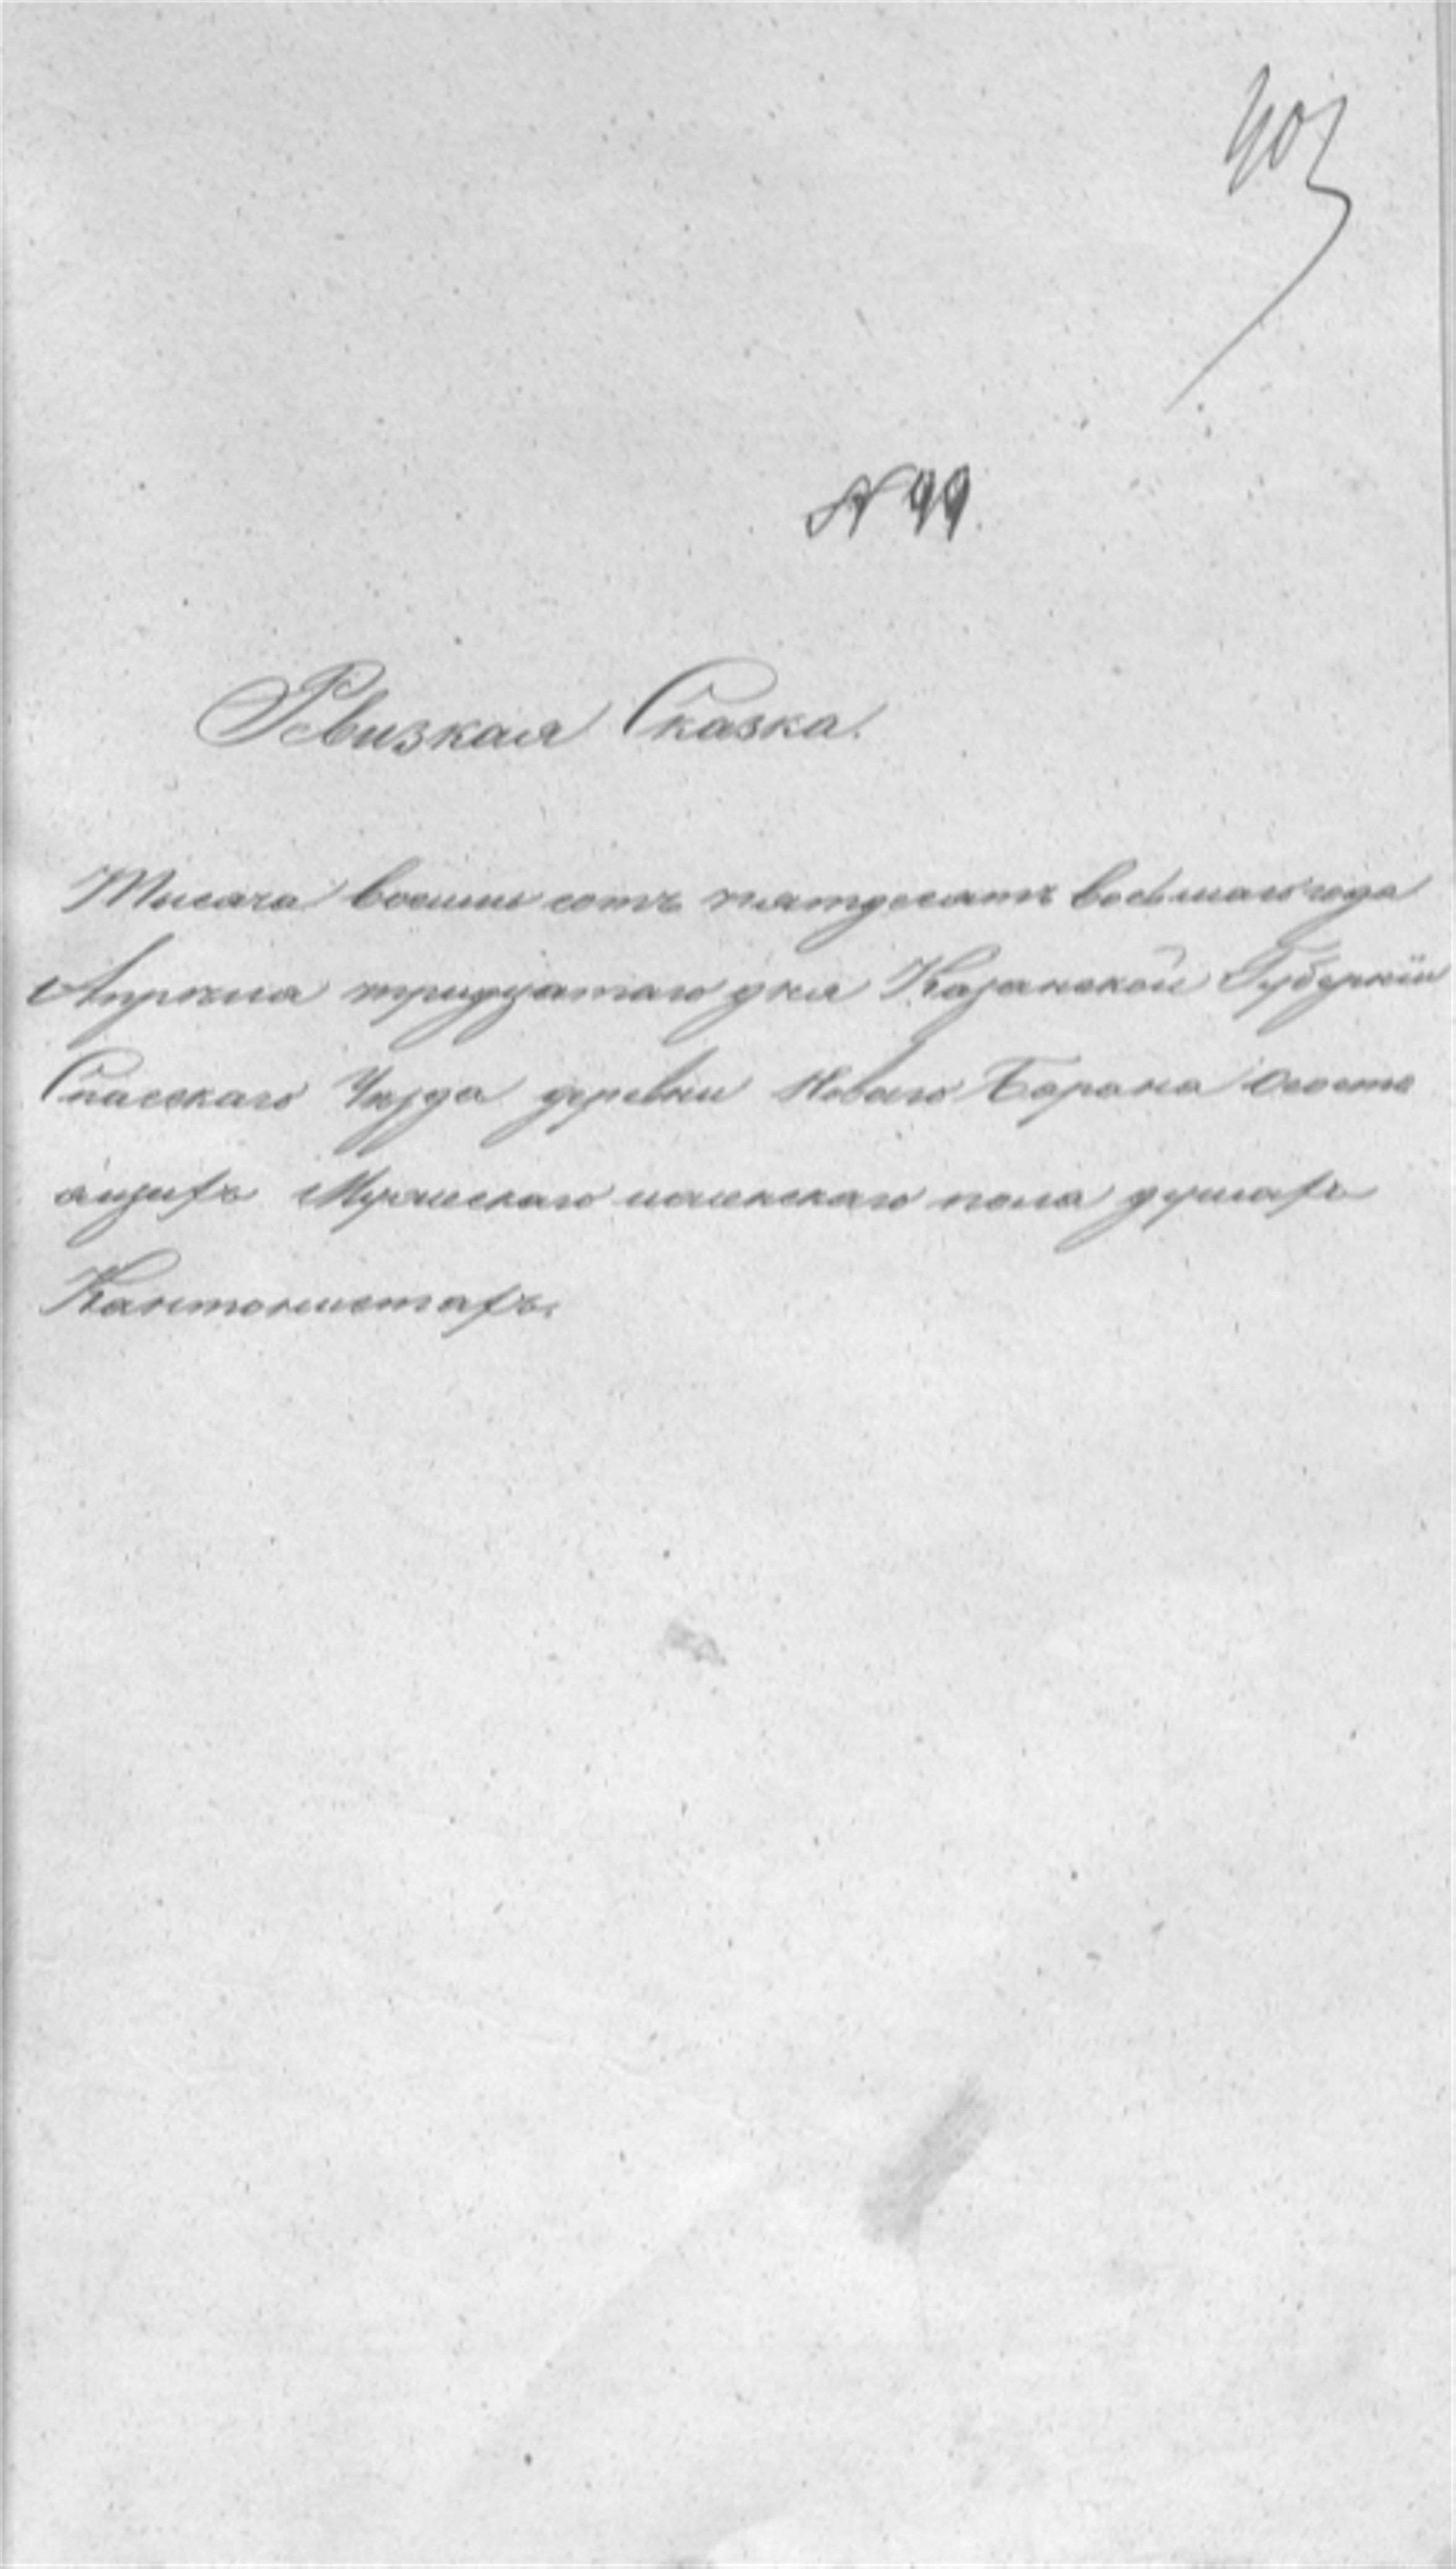 403
№ 99.
Ревизкая Сказка.
Тысяча восемь сотъ пятьдесятъ восьмаго года
Апреля тридцатаго дня Казанской Губерніи
Спасскаго Уезда деревни Новаго Барана о состо
ящихъ Мужескаго и женскаго пола душахъ
Кантонистахъ.